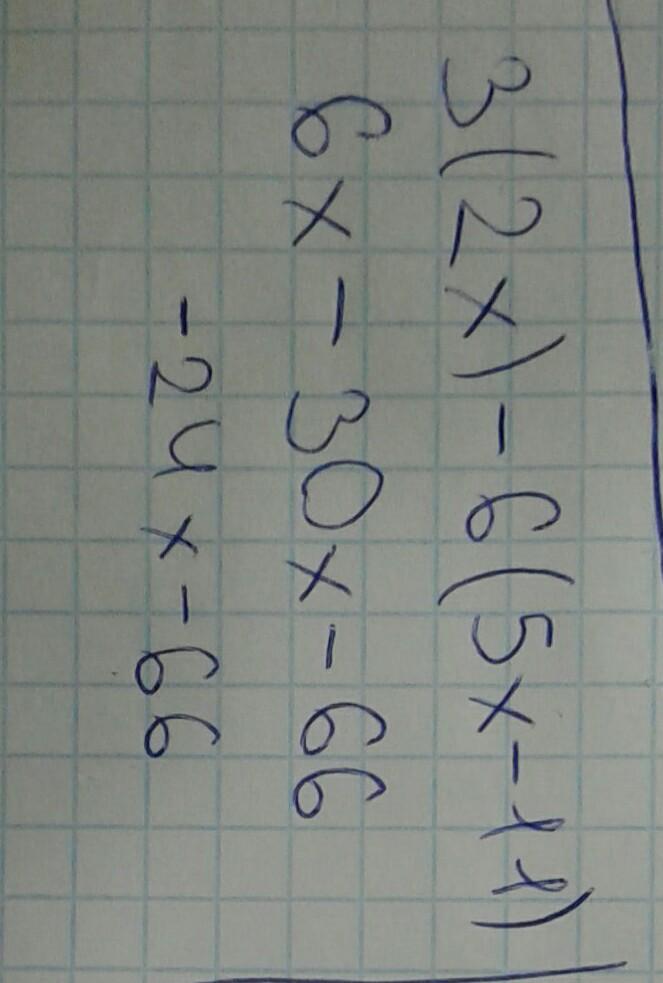 3(2x)-6(5x-11)
6x-30x-66
-24x-66